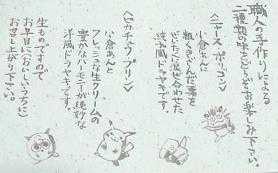 職人の手作りによる
二種類の味をどうぞお楽しみ下さい。
<ニャース ポリゴン>
小倉あんに
粗くきざんだ栗を
ぜいたくに混ぜ合わせた
ドラヤキです。
<ピカチュウ プリン>
小倉あんと
フレッシュな生クリームの
豊かなハーモニーが絶妙な
洋風ドラヤキです。
生ものですので
お早目に(おいしいうちに)
お召し上がり下さい。